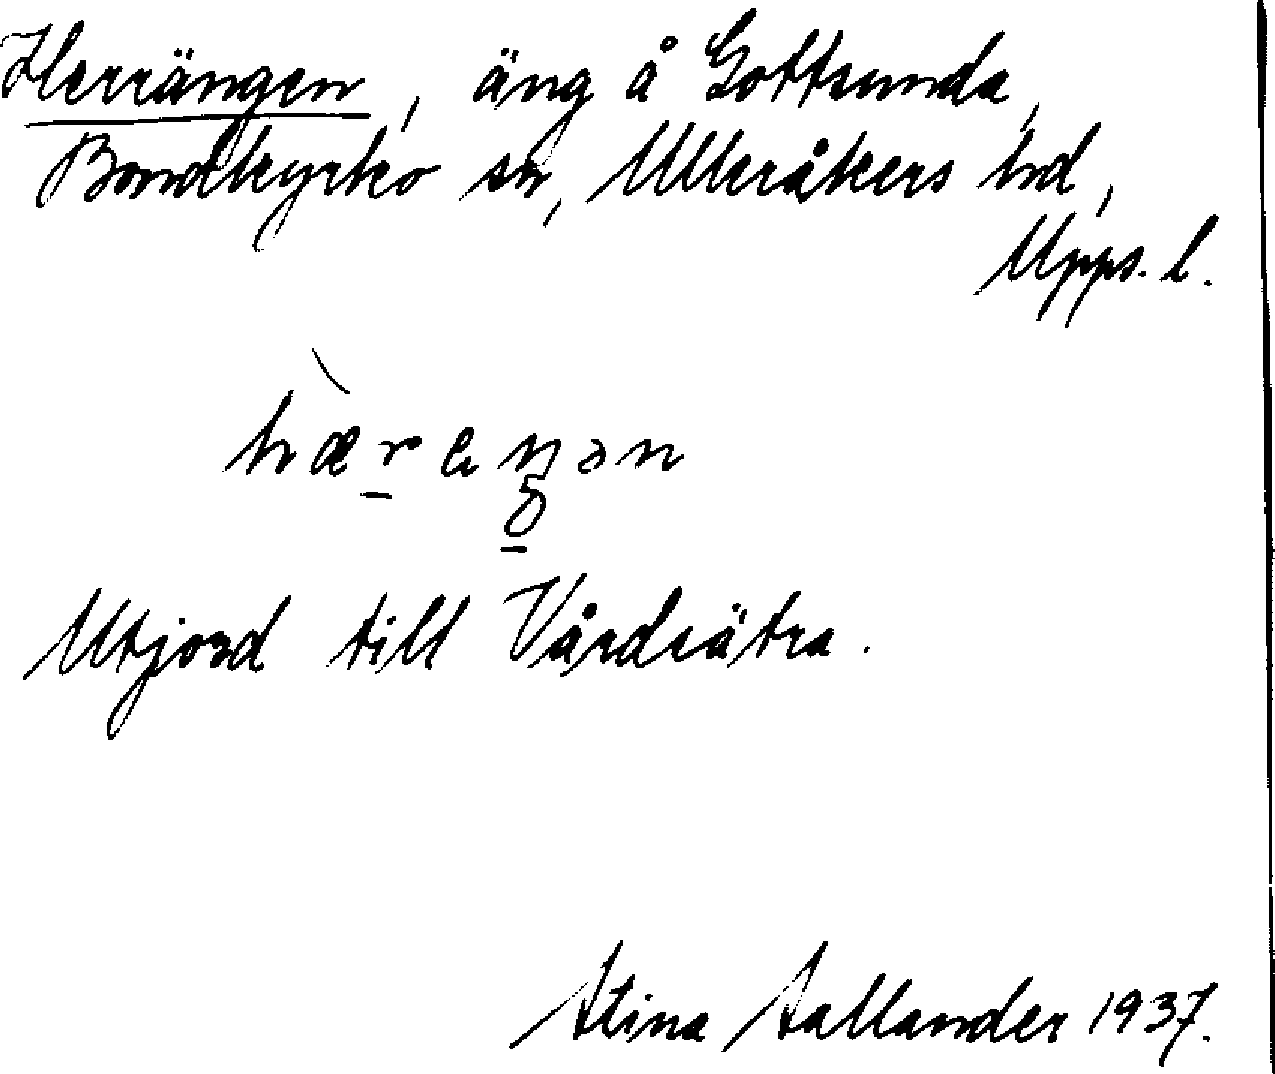 Herrängen, äng å Gottsunda,
Bondkyrko sn, Ulleråkers hd,
Upps. l.
Utjord till Vårdsätra.
Stina Sallander 1937.